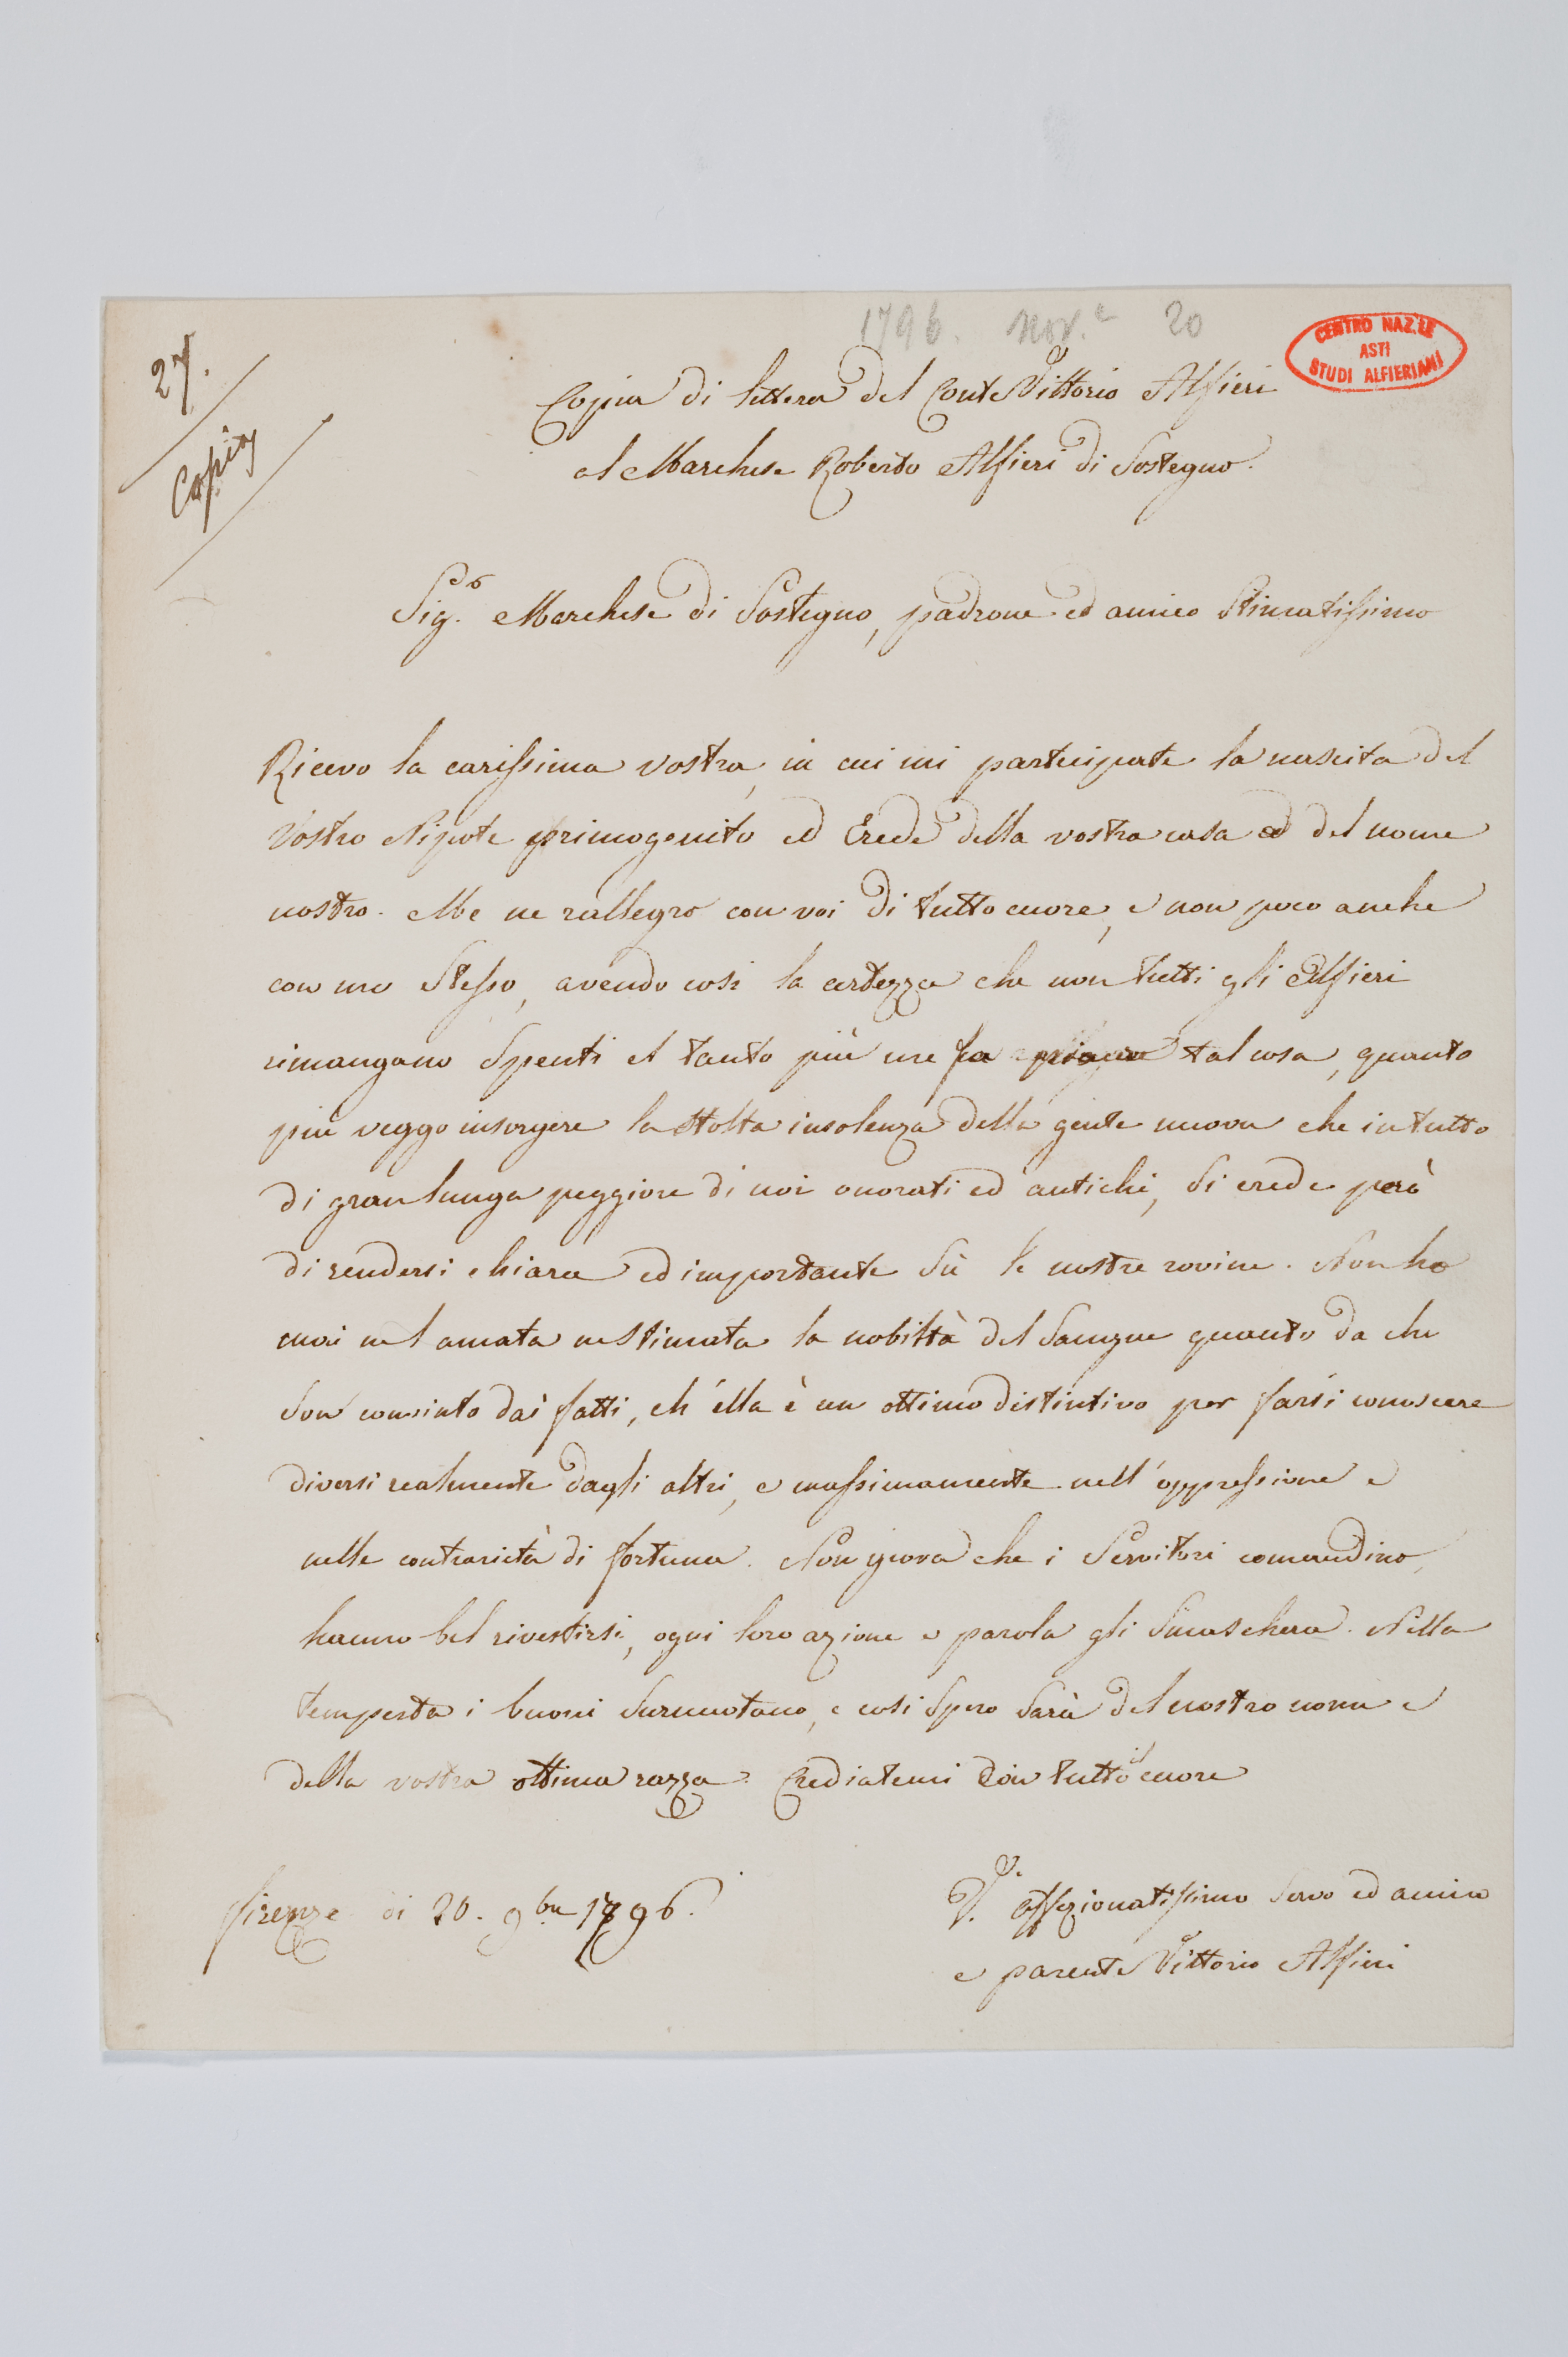 1796. nov.e 20
CENTRO NAZ.LE
ASTI
STUDI ALFIERIANI
27.
Copia
Copia di lettera del Conte Vittorio Alfieri
al Marchese Roberto Alfieri di Sostegno.
Sig.r Marchese di Sostegno, padrone ed amico Stimatissimo
Ricevo la carissima vostra, in cui mi partecipate la nascita del
Vostro Nipote primogenito ed Erede della vostra casa ed del nome
nostro. Me ne rallegro con voi di tutto cuore, e non poco anche
con me Stesso, avendo così la certezza che non tutti gli Alfieri
rimangano Spenti et tanto più me fa piacer tal cosa, quanto
più veggo insorgere la Stolta insolenza della gente nuova che in tutto
di gran lunga peggiore di noi onorati ed antichi, Si crede però
di rendersi chiara ed importante Sù le nostre rovine. Non ho
mai nel amata ne Stimata la nobiltà del Sangue quanto da che
Son convinto dai fatti, ch'ella è un ottimo distintivo per farsi conoscere
diversi realmente dagli altri, e massimamente nell'oppressione e
nelle contrarietà di fortuna. Non giova che i Servitori comandino,
hanno bel rivestirsi, ogni loro azione e parola gli Smaschera. Nella
tempesta i buoni Surnuotano, e così Spero Sarà del nostro nome e
della vostra ottima razza. Crediatemi Con tutto il cuore
Firenze di 20. 9bre 1796.
V. affezionatissimo Servo ed amico
e parente Vittorio Alfieri